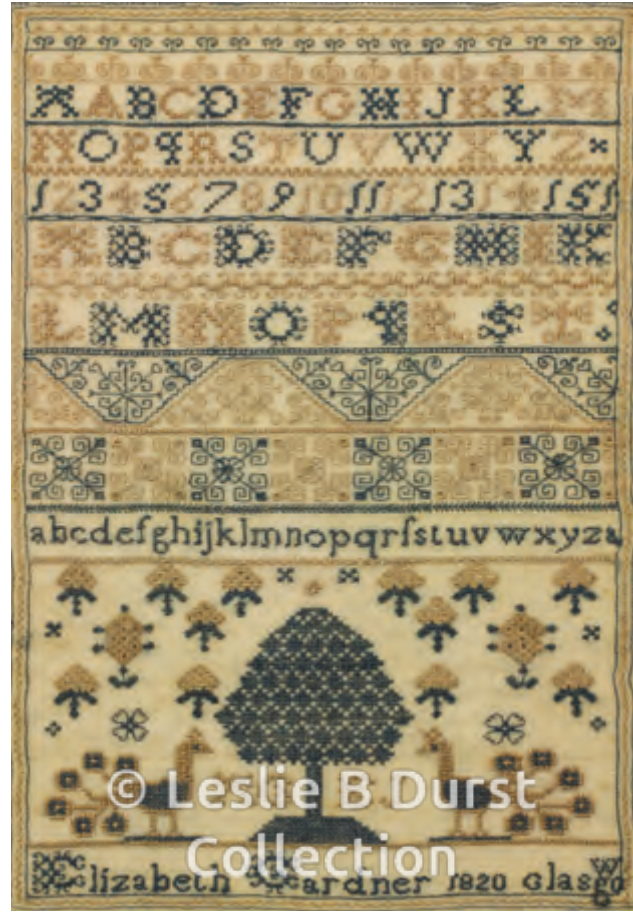 A B C D E F G H I J K L M
N O P q R S T U V W X Y Z
1 2 3 4 5 6 7 8 9 10 11 12 13 14 15 1
A B C D E F G H I K
L M N O P q R S T
abcdefghijklmnopqrſstuvwxyza
© Leslie B Durst
Collection
Elizabeth Gardner 1820 Glasgow